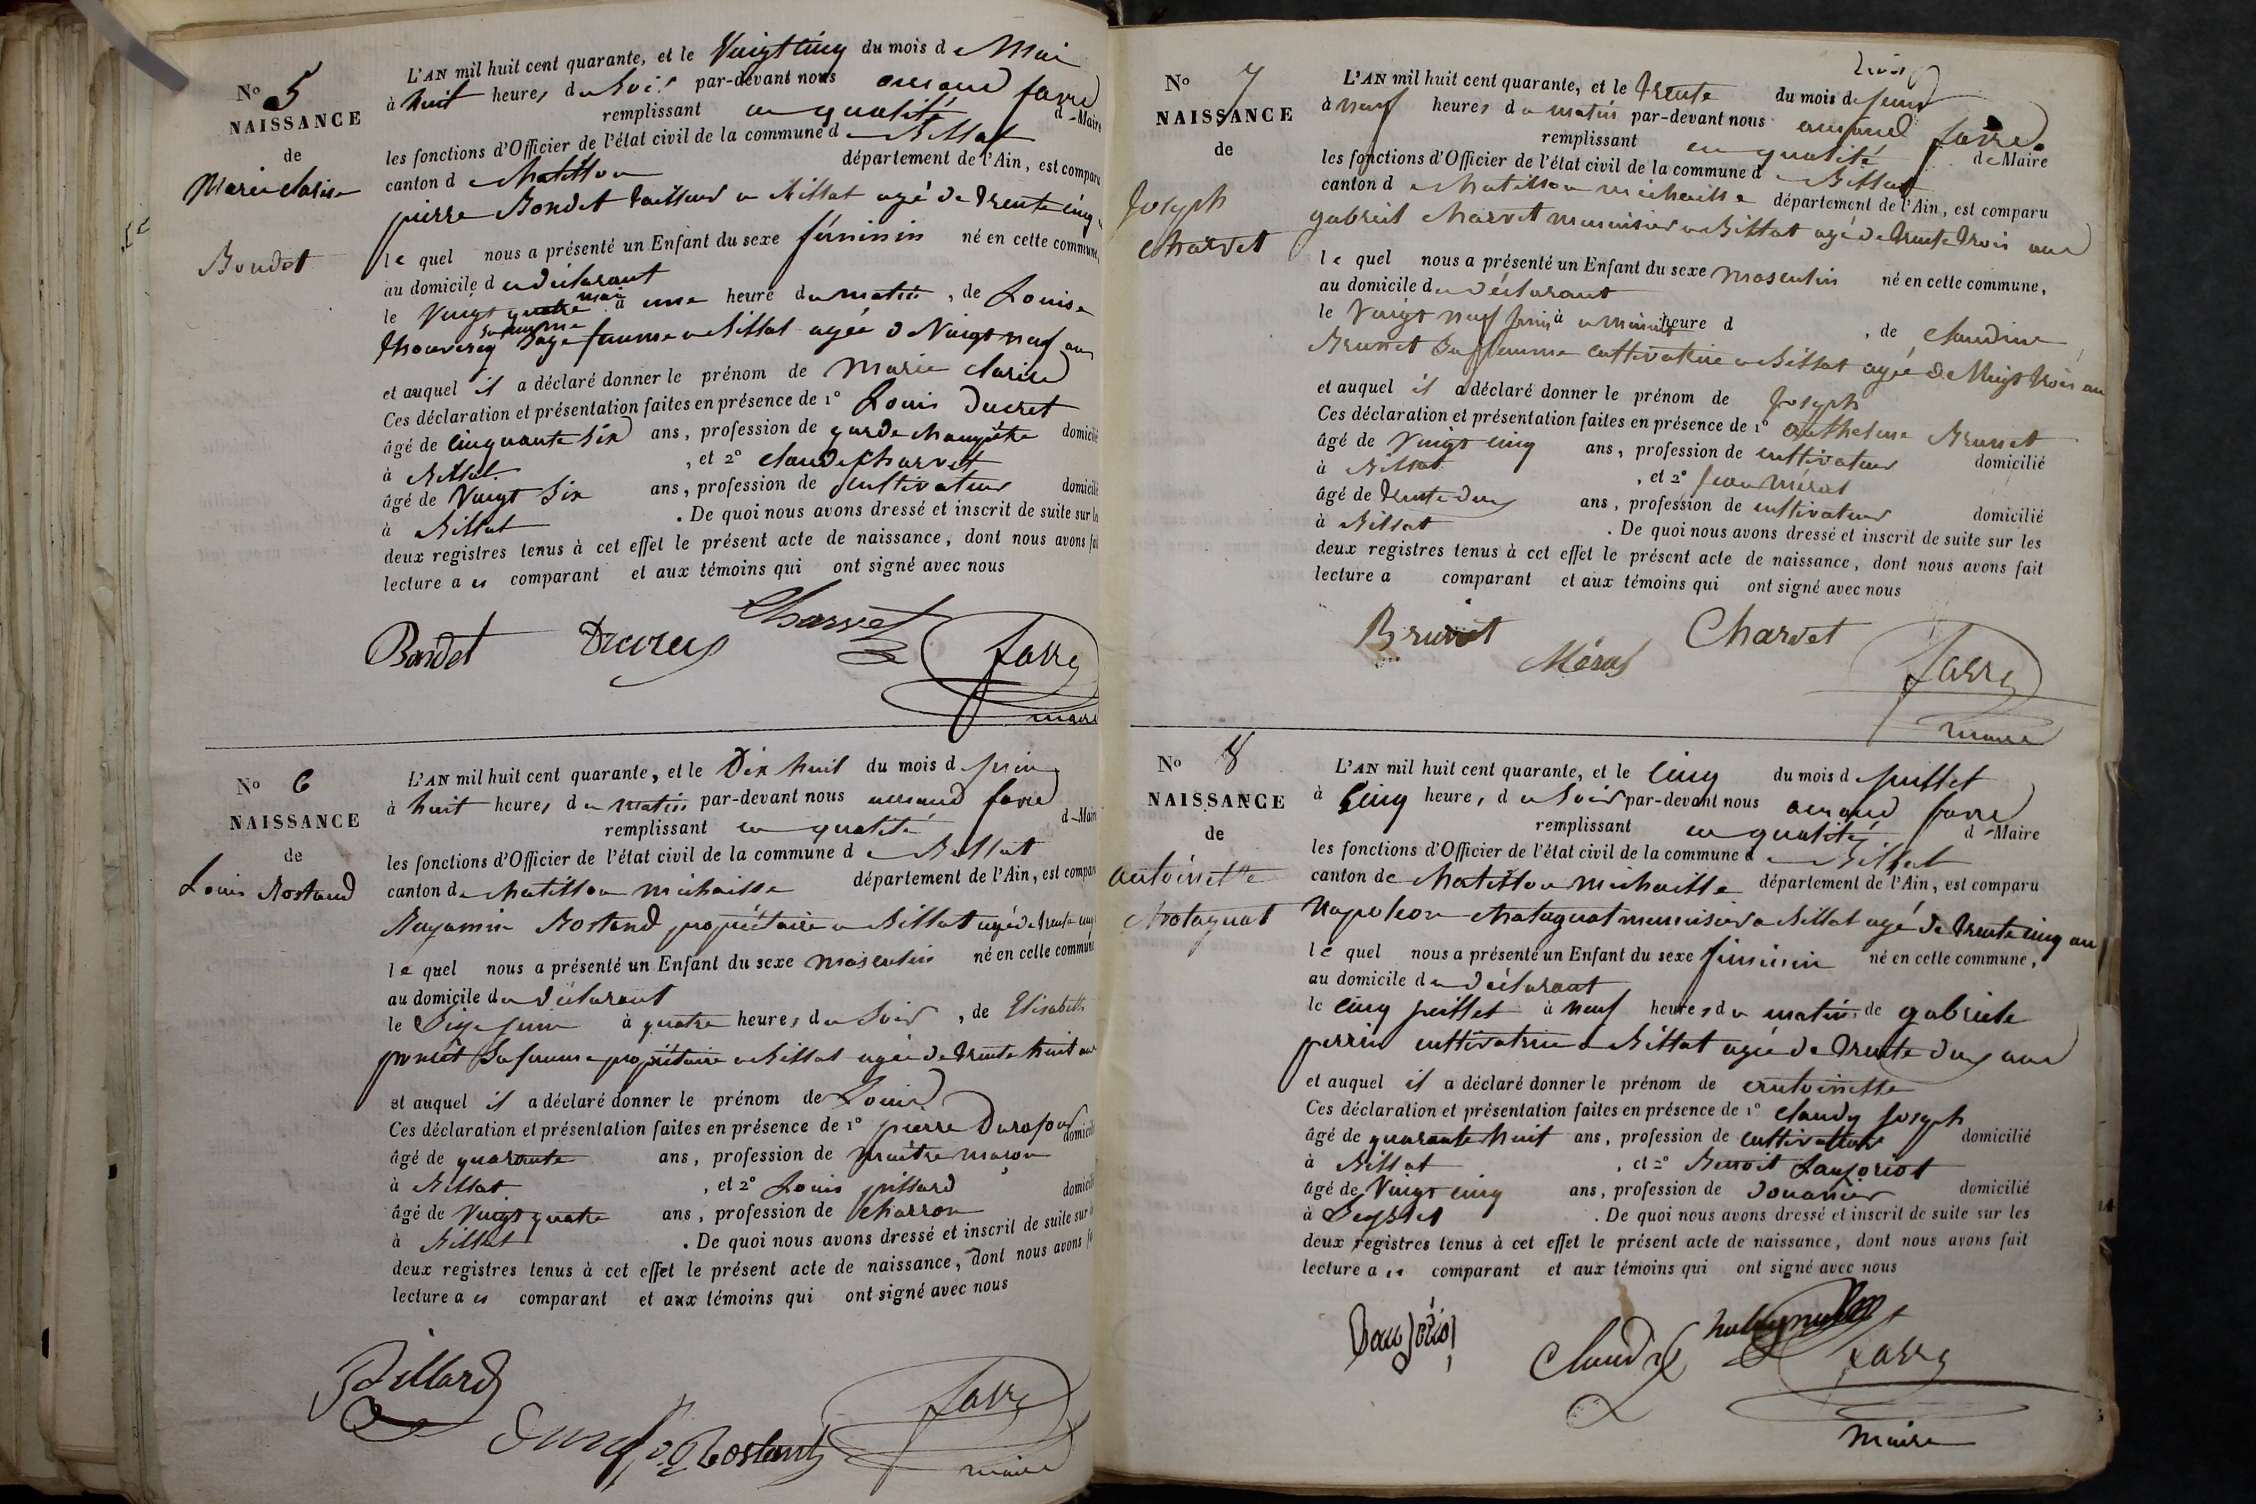 N° 5
NAISSANCE
de
Marie Clarise
Bondet
L'AN mil huit cent quarante, et le Vingt cinq du mois de Mai
à huit heures du Soir par-devant nous armand favre
remplissant en qualité de Maire
les fonctions d'Officier de l'état civil de la commune de Billiat
canton de Chatillon département de l'Ain, est comparu
pierre Bondet tailleur a Billiat agé de trente cinq
le quel nous a présenté un Enfant du sexe féminin né en cette commune,
au domicile du déclarant
le Vingt quatre mai à une heure du matin, de Louise
sa femme a Billiat agée de Vingt neuf ans
et auquel il a déclaré donner le prénom de Marie Clarise
Ces déclaration et présentation faites en présence de 1° Louis Ducret
âgé de cinquante six ans, profession de garde champêtre domicilié
à Billiat, et 2° claude Charvet
âgé de Vingt Six ans, profession de cultivateur domicilié
à Billiat. De quoi nous avons dressé et inscrit de suite sur les
deux registres tenus à cet effet le présent acte de naissance, dont nous avons fait
lecture a es comparant et aux témoins qui ont signé avec nous
Charvet
Bondet Ducret favre
maire
N° 6
NAISSANCE
de
Louis Rostand
L'AN mil huit cent quarante, et le Dix huit du mois de juin
à huit heures du matin par-devant nous armand favre
remplissant en qualité de Maire
les fonctions d'Officier de l'état civil de la commune de Billiat
canton de Chatillon michaille département de l'Ain, est comparu
Benjamin Rostand propriétaire a Billiat agé de trente cinq
le quel nous a présenté un Enfant du sexe masculin né en cette commune
au domicile du déclarant
le Seize juin à quatre heures du Soir, de Elisabeth
poncet Sa femme propriétaire a Billiat agée de trente huit ans
et auquel il a déclaré donner le prénom de Louis
Ces déclaration et présentation faites en présence de 1° pierre Durafour
âgé de quarante ans, profession de maître maçon domicilié
à Billiat, et 2° Louis pillard
âgé de Vingt quatre ans, profession de charron domicilié
à Billiat. De quoi nous avons dressé et inscrit de suite sur les
deux registres tenus à cet effet le présent acte de naissance, dont nous avons fait
lecture a es comparant et aux témoins qui ont signé avec nous
Pillard
Rostand favre
maire
N° 7
NAISSANCE
de
Joseph
Charvet
L'AN mil huit cent quarante, et le trente du mois de juin
à neuf heures du matin par-devant nous armand favre
remplissant en qualité de Maire
les fonctions d'Officier de l'état civil de la commune de Billiat
canton de Chatillon michaille département de l'Ain, est comparu
gabriel Charvet menuisier a Billiat agé de trente trois ans
le quel nous a présenté un Enfant du sexe masculin né en cette commune,
au domicile du déclarant
le Vingt neuf juin à minuit heure d, de Claudine
Brunet Sa femme cultivatrice a Billiat agée de Vingt trois ans
et auquel il a déclaré donner le prénom de Joseph
Ces déclaration et présentation faites en présence de 1° anthelme Brunet
âgé de Vingt cinq ans, profession de cultivateur domicilié
à Billiat, et 2° jean Mérat
âgé de trente deux ans, profession de cultivateur domicilié
à Billiat. De quoi nous avons dressé et inscrit de suite sur les
deux registres tenus à cet effet le présent acte de naissance, dont nous avons fait
lecture a comparant et aux témoins qui ont signé avec nous
Brunet Charvet
favre
maire
N° 8
NAISSANCE
de
antoinette
Chatagnat
L'AN mil huit cent quarante, et le Cinq du mois de juillet
à Cinq heure, du Soir par-devant nous armand favre
remplissant en qualité de Maire
les fonctions d'Officier de l'état civil de la commune de Billiat
canton de Chatillon michaille département de l'Ain, est comparu
Napoléon Chatagnat menuisier a Billiat agé de trente cinq ans
le quel nous a présenté un Enfant du sexe féminin né en cette commune,
au domicile du déclarant
le cinq juillet à neuf heures du matin, de gabriele
perrin cultivatrice a Billiat agée de trente deux ans
et auquel il a déclaré donner le prénom de antoinette
Ces déclaration et présentation faites en présence de 1° Claudy Joseph
âgé de quarante huit ans, profession de cultivateur domicilié
à Billiat, et 2° Benoit Lansoriot
âgé de Vingt cinq ans, profession de Douanier domicilié
à Seyssel. De quoi nous avons dressé et inscrit de suite sur les
deux registres tenus à cet effet le présent acte de naissance, dont nous avons fait
lecture a es comparant et aux témoins qui ont signé avec nous
favre
maire